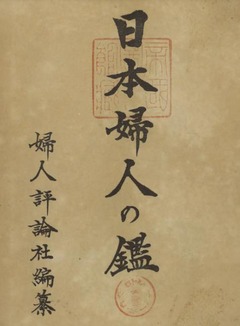 日本婦人の鑑
婦人評論社編纂